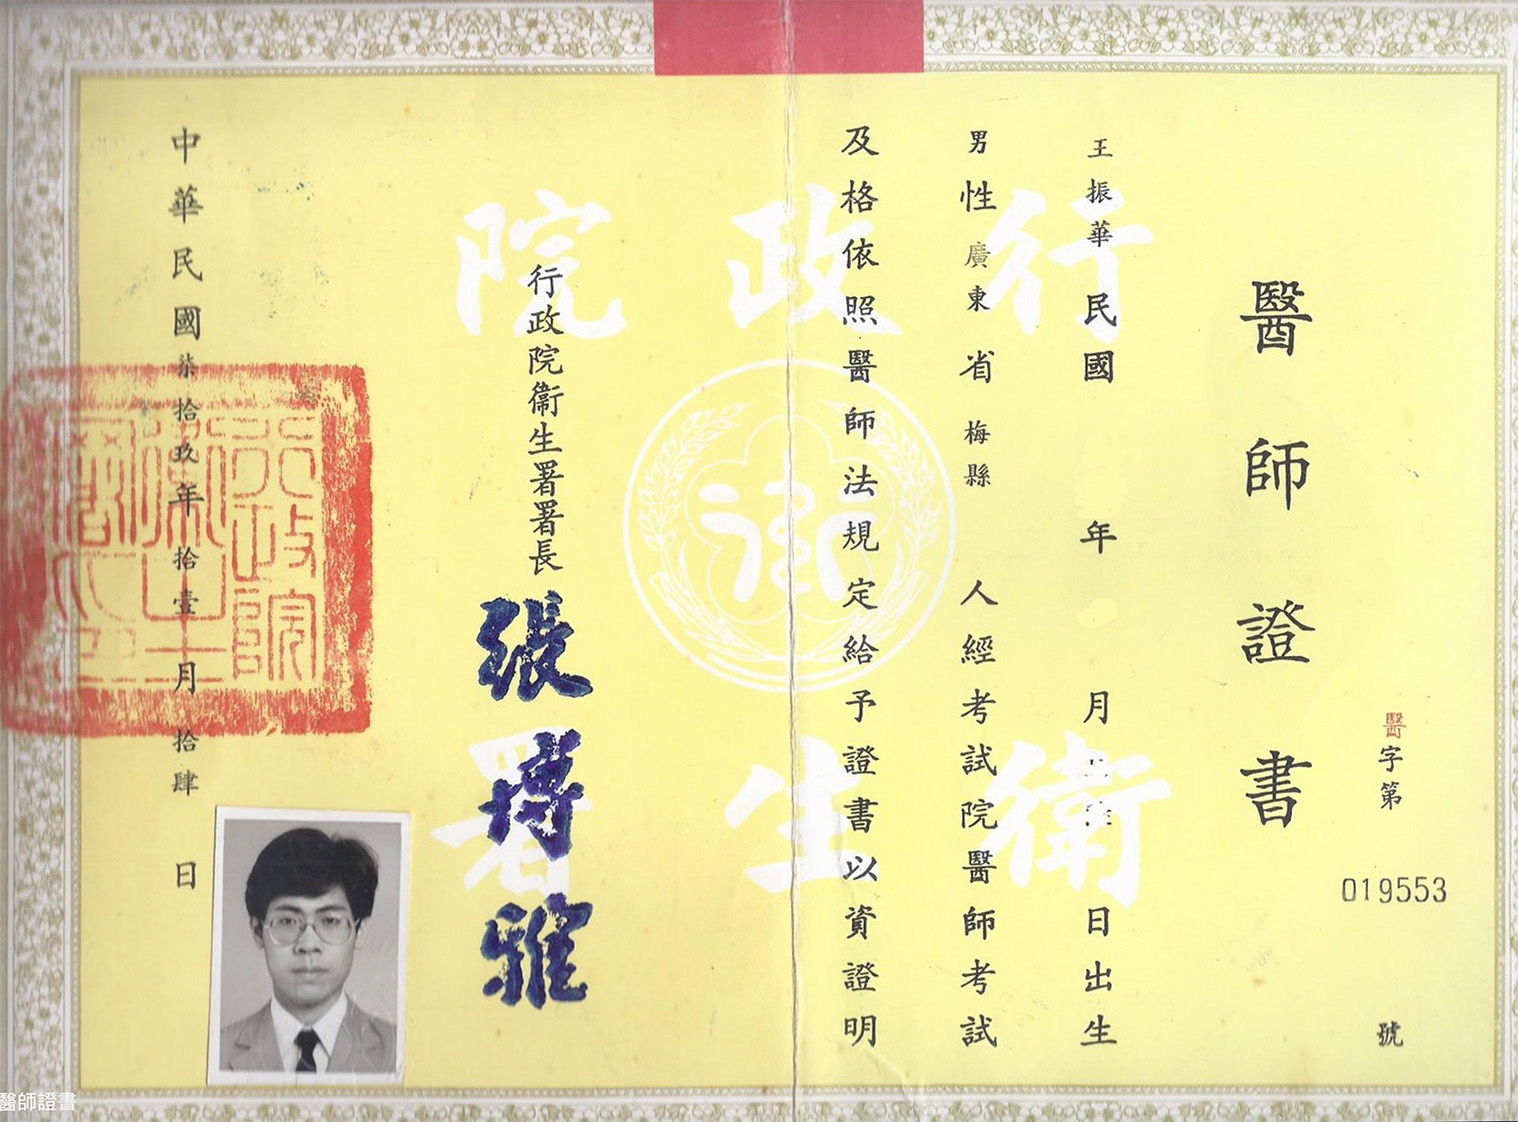 醫字第 019553 號
醫師證書
王振華民國 年 月 日出生
男性廣東省梅縣人經考試院醫師考試
及格依照醫師法規定給予證書以資證明
行政院
衛生署
行政院衞生署署長 張博雅
中華民國柒拾玖年拾壹月拾肆日
行政院衛生署之印
醫師證書